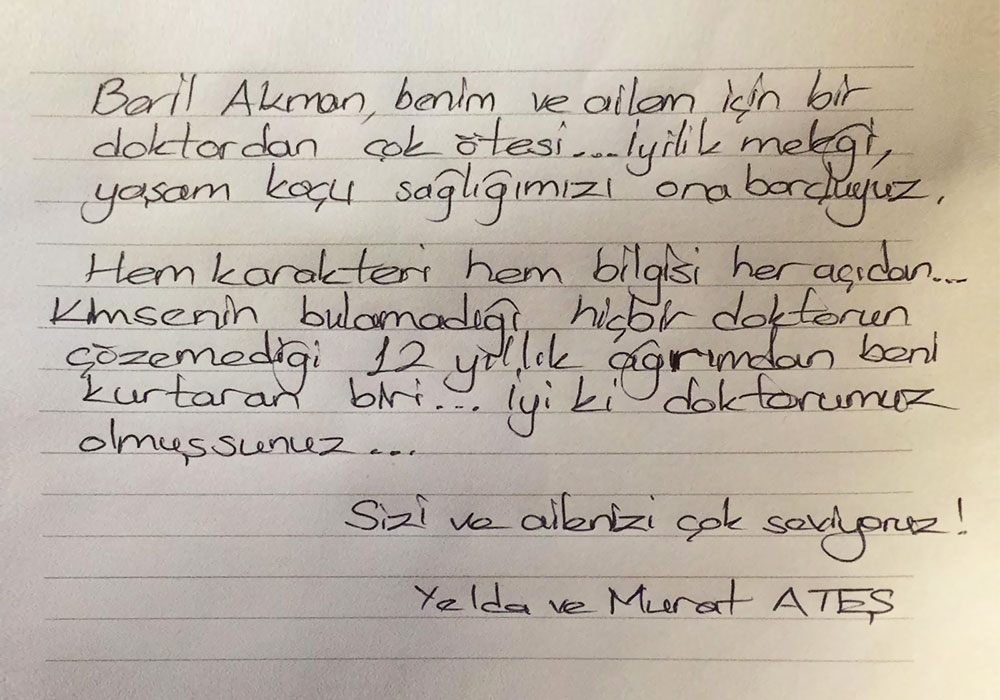 Beril Akman, benim ve ailem için bir
doktordan çok ötesi... iyilik meleği,
yaşam koçu sağlığımızı ona borçluyuz.
Hem karakteri hem bilgisi her açıdan...
Kimsenin bulamadığı, hiçbir doktorun
çözemediği 12 yıllık ağrımdan beni
kurtaran biri... iyi ki doktorumuz
olmuşsunuz...
Sizi ve ailenizi çok seviyoruz!
Yelda ve Murat ATEŞ